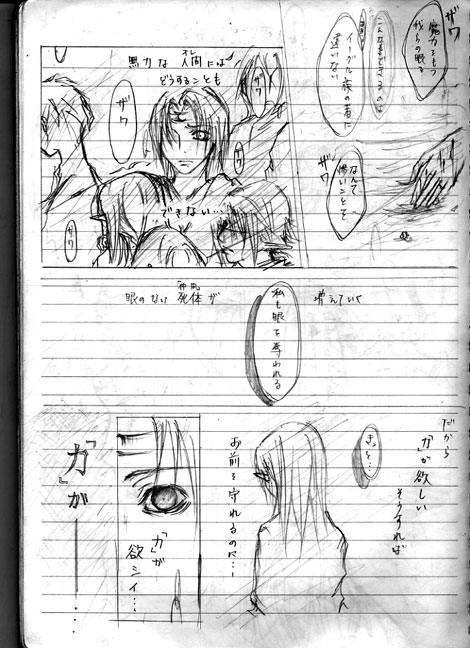 ザワ
魔力をもつ
我らの眼を
こんな事ができるのは
イーグル族の者に
違いない
なんて
怖いことを
ザワ
ザワ
ザワ
無力な人間には
オレ
どうすることも
ザワ
できない…
ザワ
増えていく
私も眼を奪われる
眼のない死体が
仲間
だから
「力」が欲しい
そうすれば
きっと…
お前を守れるのに…
「力」が
欲シイ…
「力」が――…